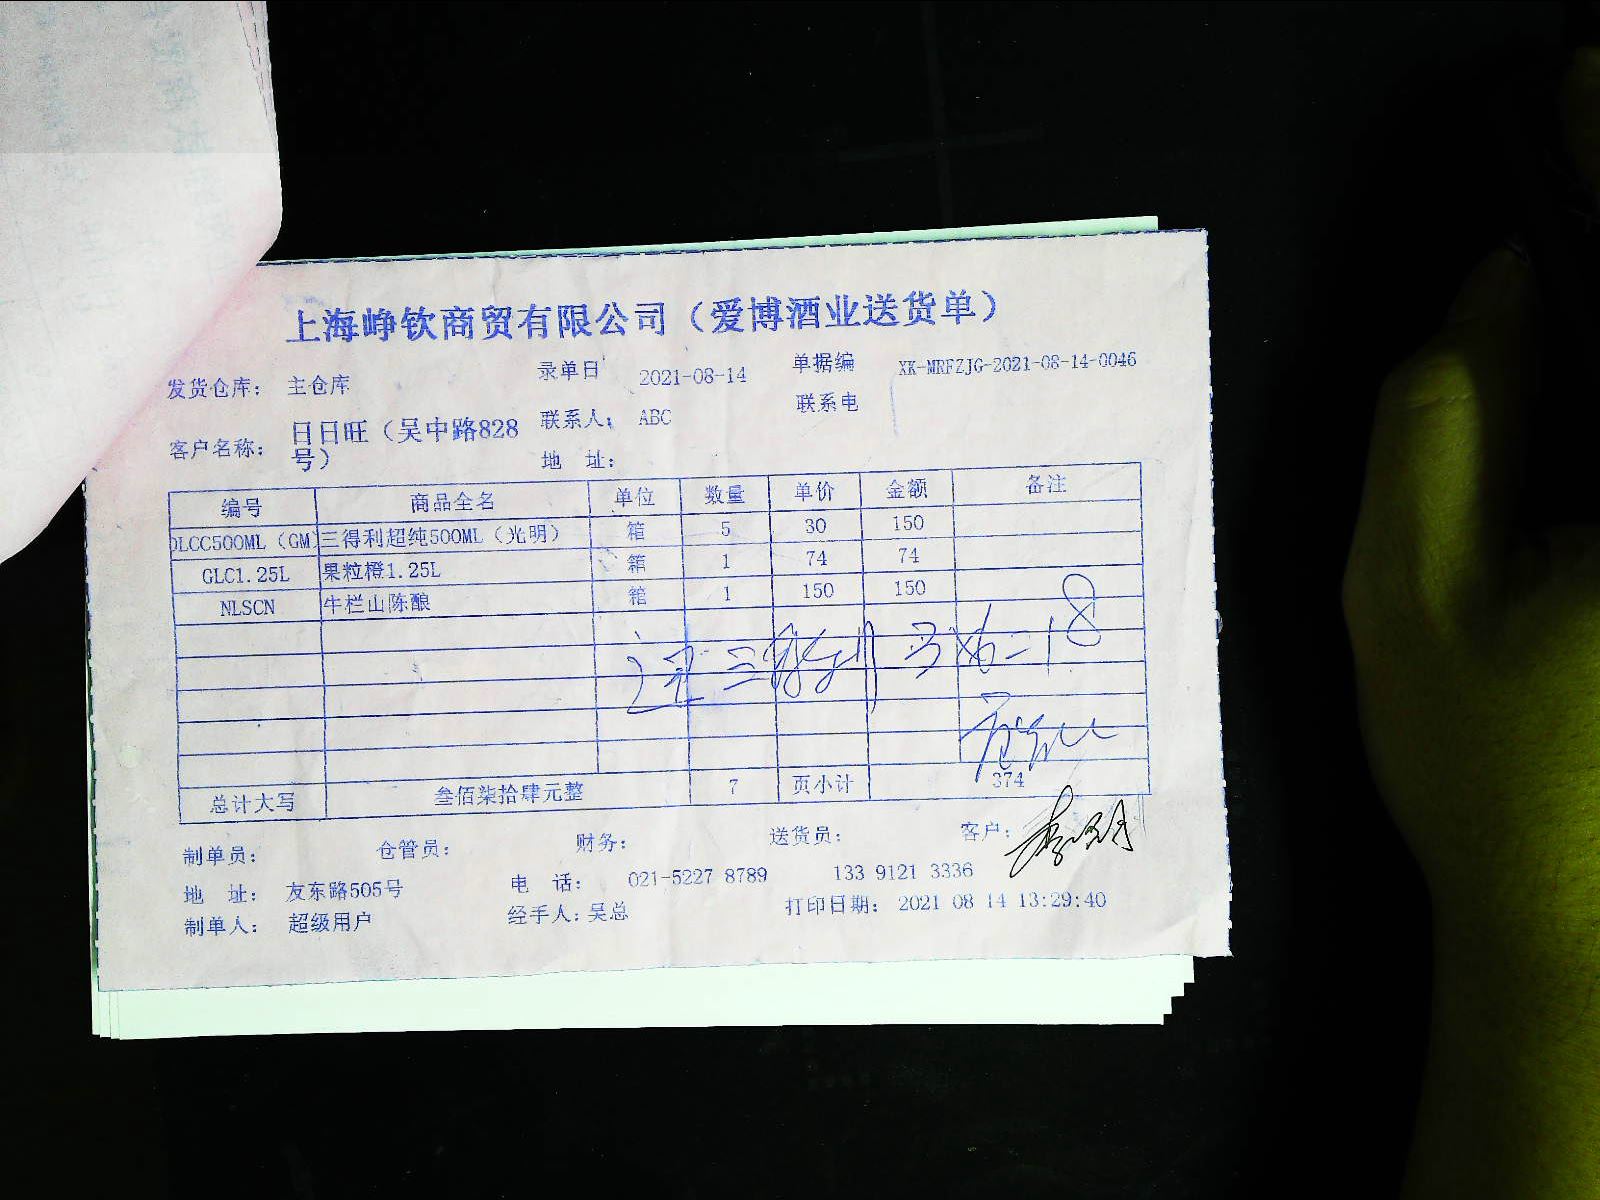 上海峥钦商贸有限公司（爱博酒业送货单）
发货仓库： 主仓库 录单日 2021-08-14 单据编 XK-MRFZJG-2021-08-14-0046
客户名称： 日日旺（吴中路828号） 联系人： ABC 联系电
地 址：
编号 商品全名 单位 数量 单价 金额 备注
DLCC500ML（GM 三得利超纯500ML（光明） 箱 5 30 150
GLC1.25L 果粒橙1.25L 箱 1 74 74
NLSCN 牛栏山陈酿 箱 1 150 150
3×6=18
总计大写 叁佰柒拾肆元整 7 页小计 374
制单员： 仓管员： 财务： 送货员： 客户：
地 址： 友东路505号 电 话： 021-5227 8789 133 9121 3336
制单人： 超级用户 经手人：吴总 打印日期： 2021 08 14 13:29:40